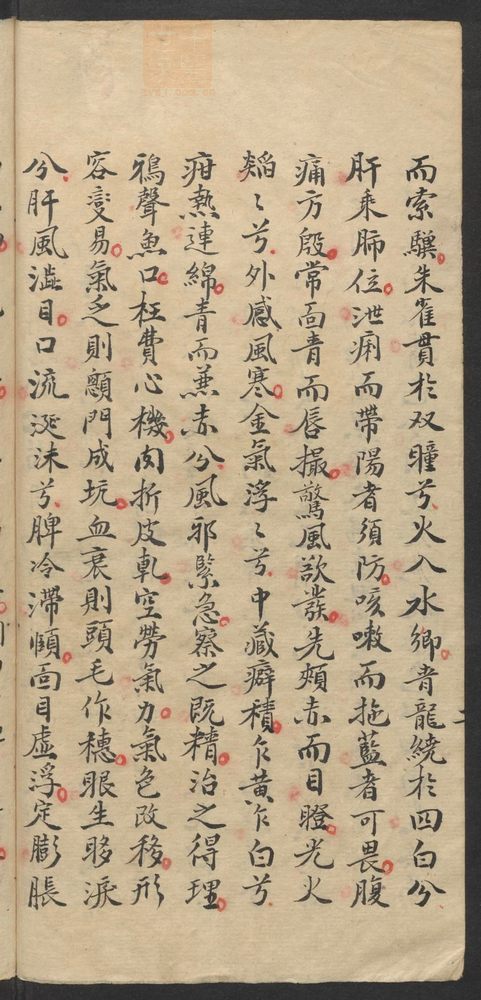 而索驥朱雀貫於双瞳兮火入水鄉青龍繞於四白兮
肝乘肺位泄痢而帶陽者須防咳嗽而拖藍者可畏腹
痛方殷常面青而唇撮驚風欲發先頰赤而目瞪光火
熖々兮外感風寒金氣浮々兮中藏癖積乍黄乍白兮
疳熱連綿青而兼赤兮風邪緊急察之既精治之得理
鴉聲魚口枉費心機肉折皮軋空勞氣力氣色改移形
容變易氣乏則顖門成坑血衰則頭毛作穗眼生眵淚
兮肝風澁目口流涎沫兮脾冷滯頤面目虛浮定膨脹